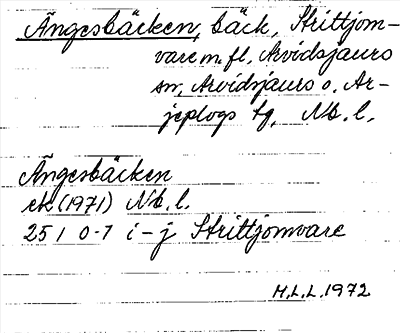 Ängesbäcken, bäck, Strittjom-
vare m. fl, Arvidsjaurs
sn, Arvidsjaurs o. Ar-
jeplogs tg, Nb. l.
Ängesbäcken
ek (1971) Nb. l.
25 I 0-1 i-j Strittjomvare
H.L.L. 1972